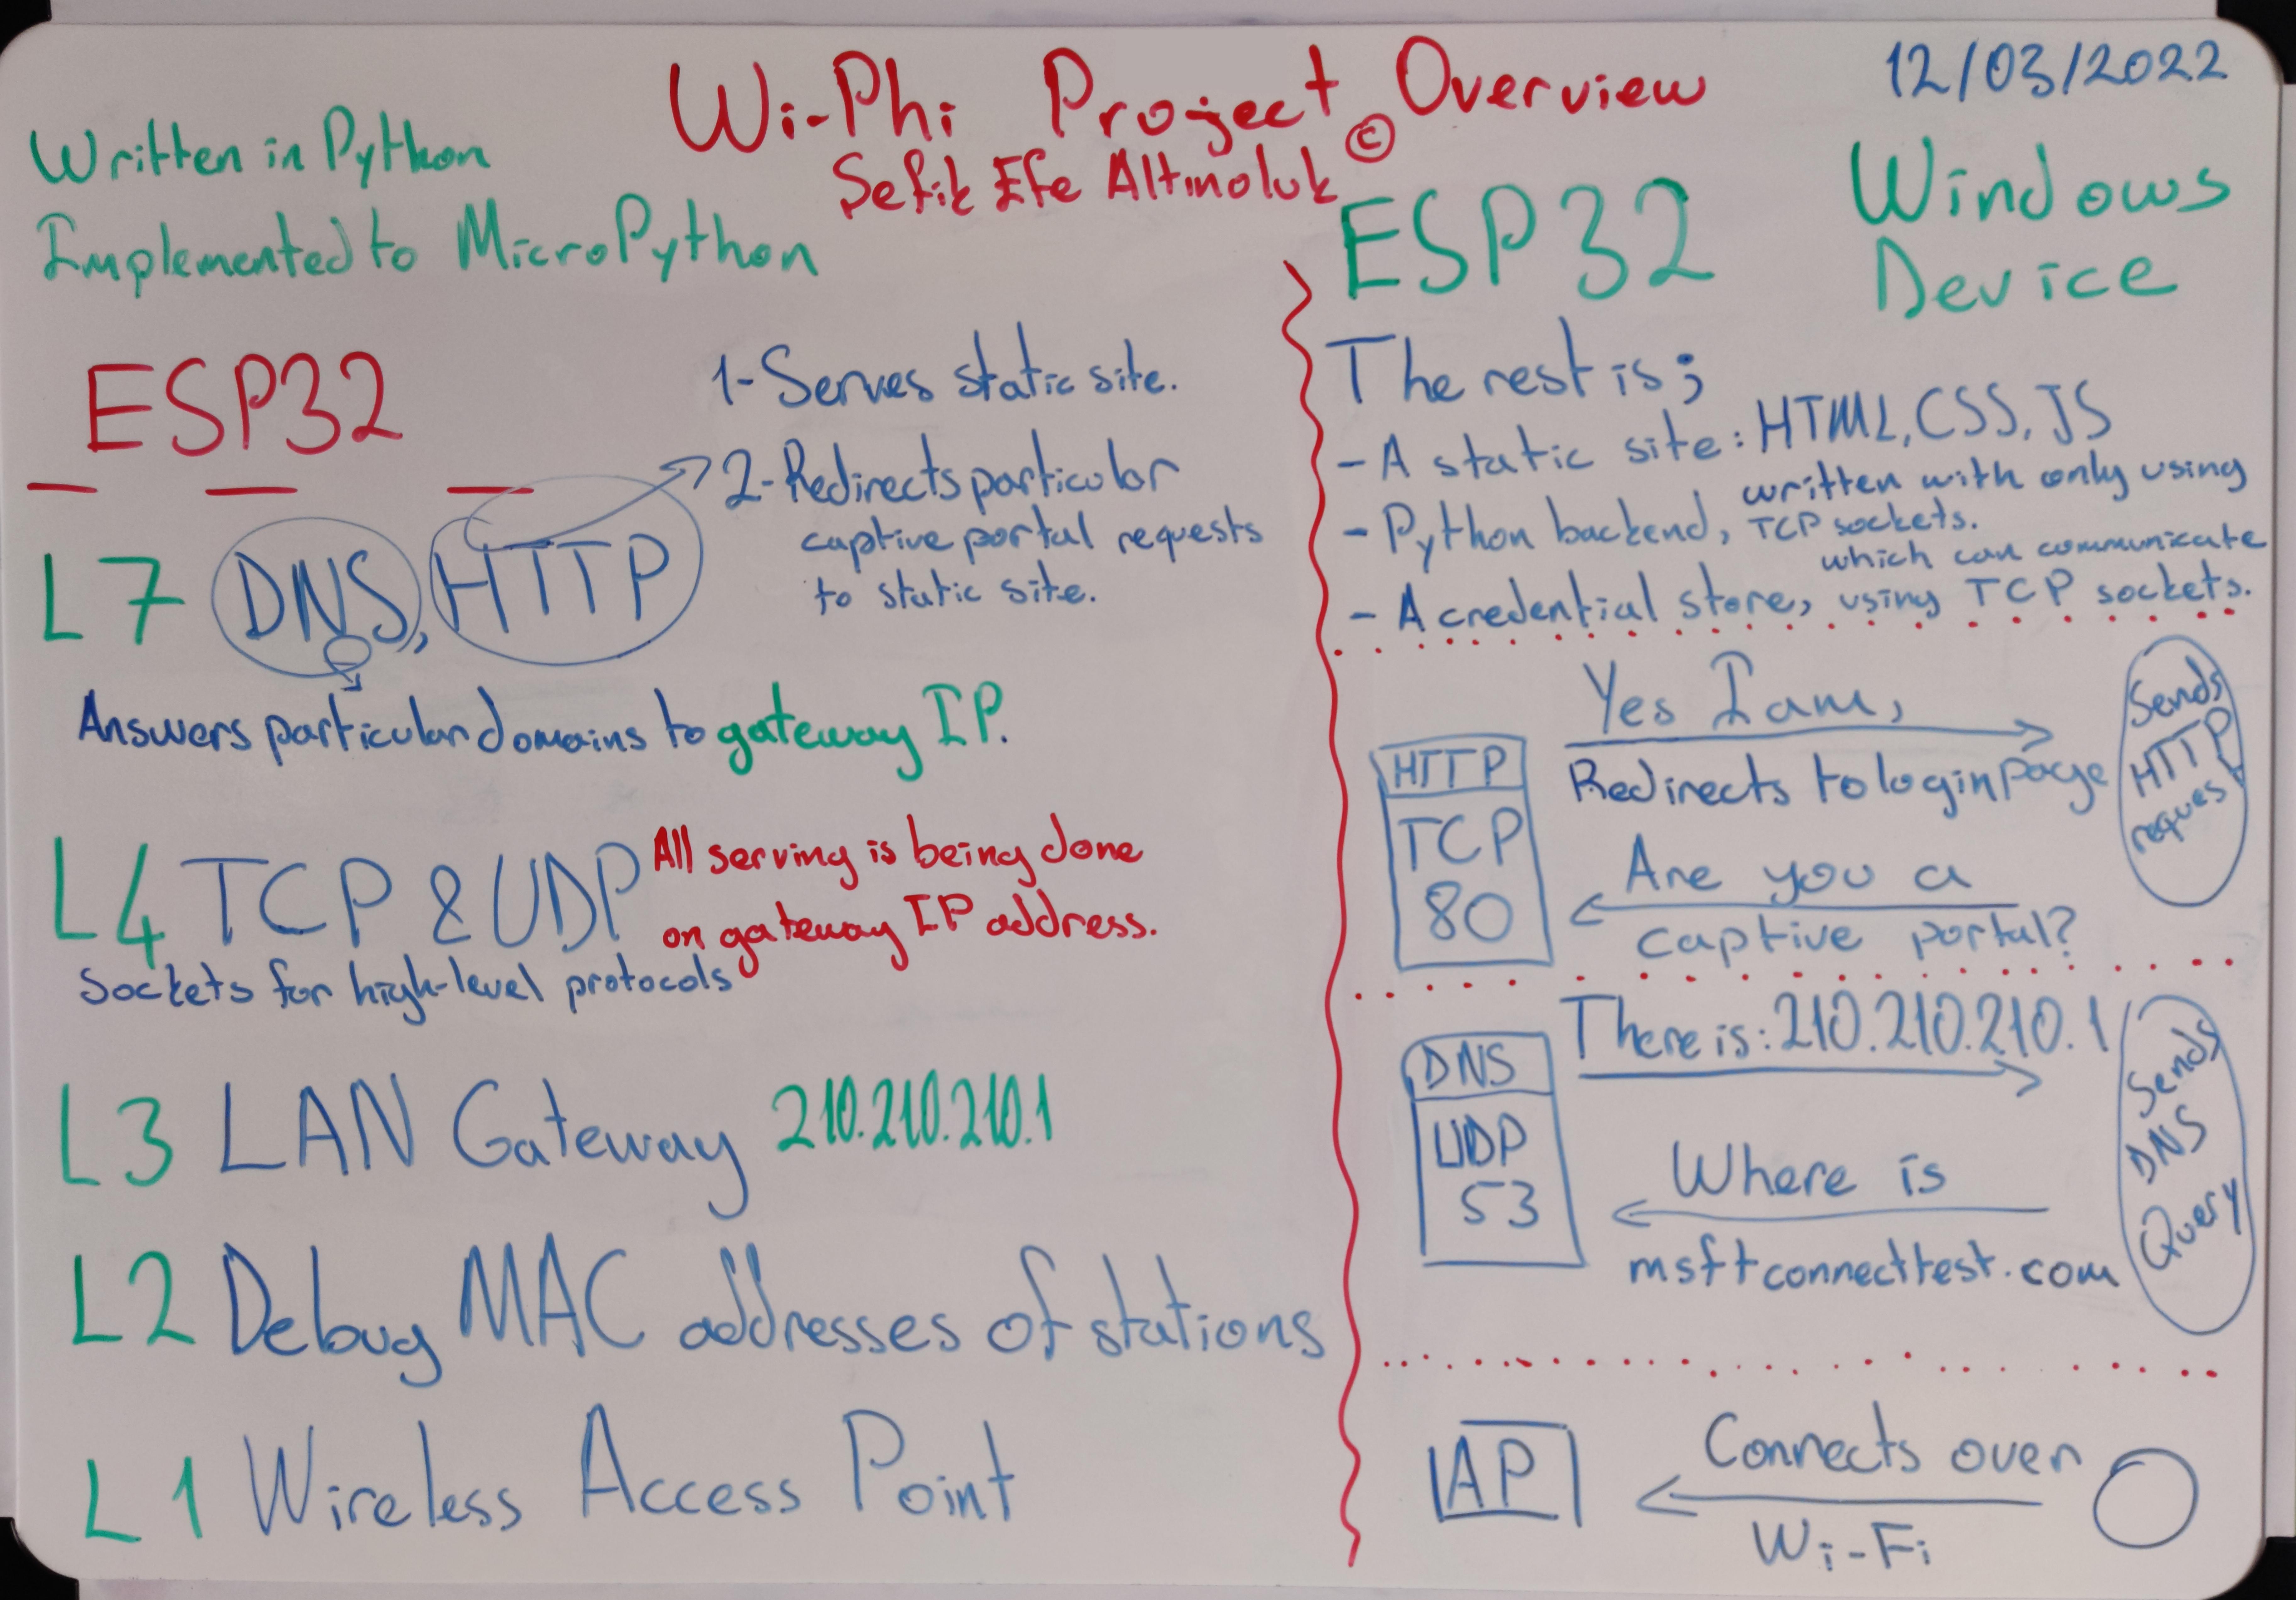 Wi-Phi Project Overview
©
Sefik Efe Altinoluk
12/03/2022
Written in Python
Implemented to MicroPython
ESP32
1- Serves static site.
2- Redirects particular
captive portal requests
to static site.
L7 DNS, HTTP
Answers particular domains to gateway IP.
L4 TCP & UDP
All serving is being done
on gateway IP address.
Sockets for high-level protocols
L3 LAN Gateway 210.210.210.1
L2 Debug MAC addresses of stations
L1 Wireless Access Point
ESP32
Windows
Device
The rest is;
- A static site: HTML, CSS, JS
- Python backend, written with only using
TCP sockets.
- A credential store, which can communicate
using TCP sockets.
Yes I am,
Redirects to login page
HTTP
TCP
80
Are you a
captive portal?
Sends
HTTP
reques
There is: 210.210.210.1
DNS
UDP
53
Where is
msftconnecttest.com
Sends
DNS
Query
AP
Connects over
Wi-Fi